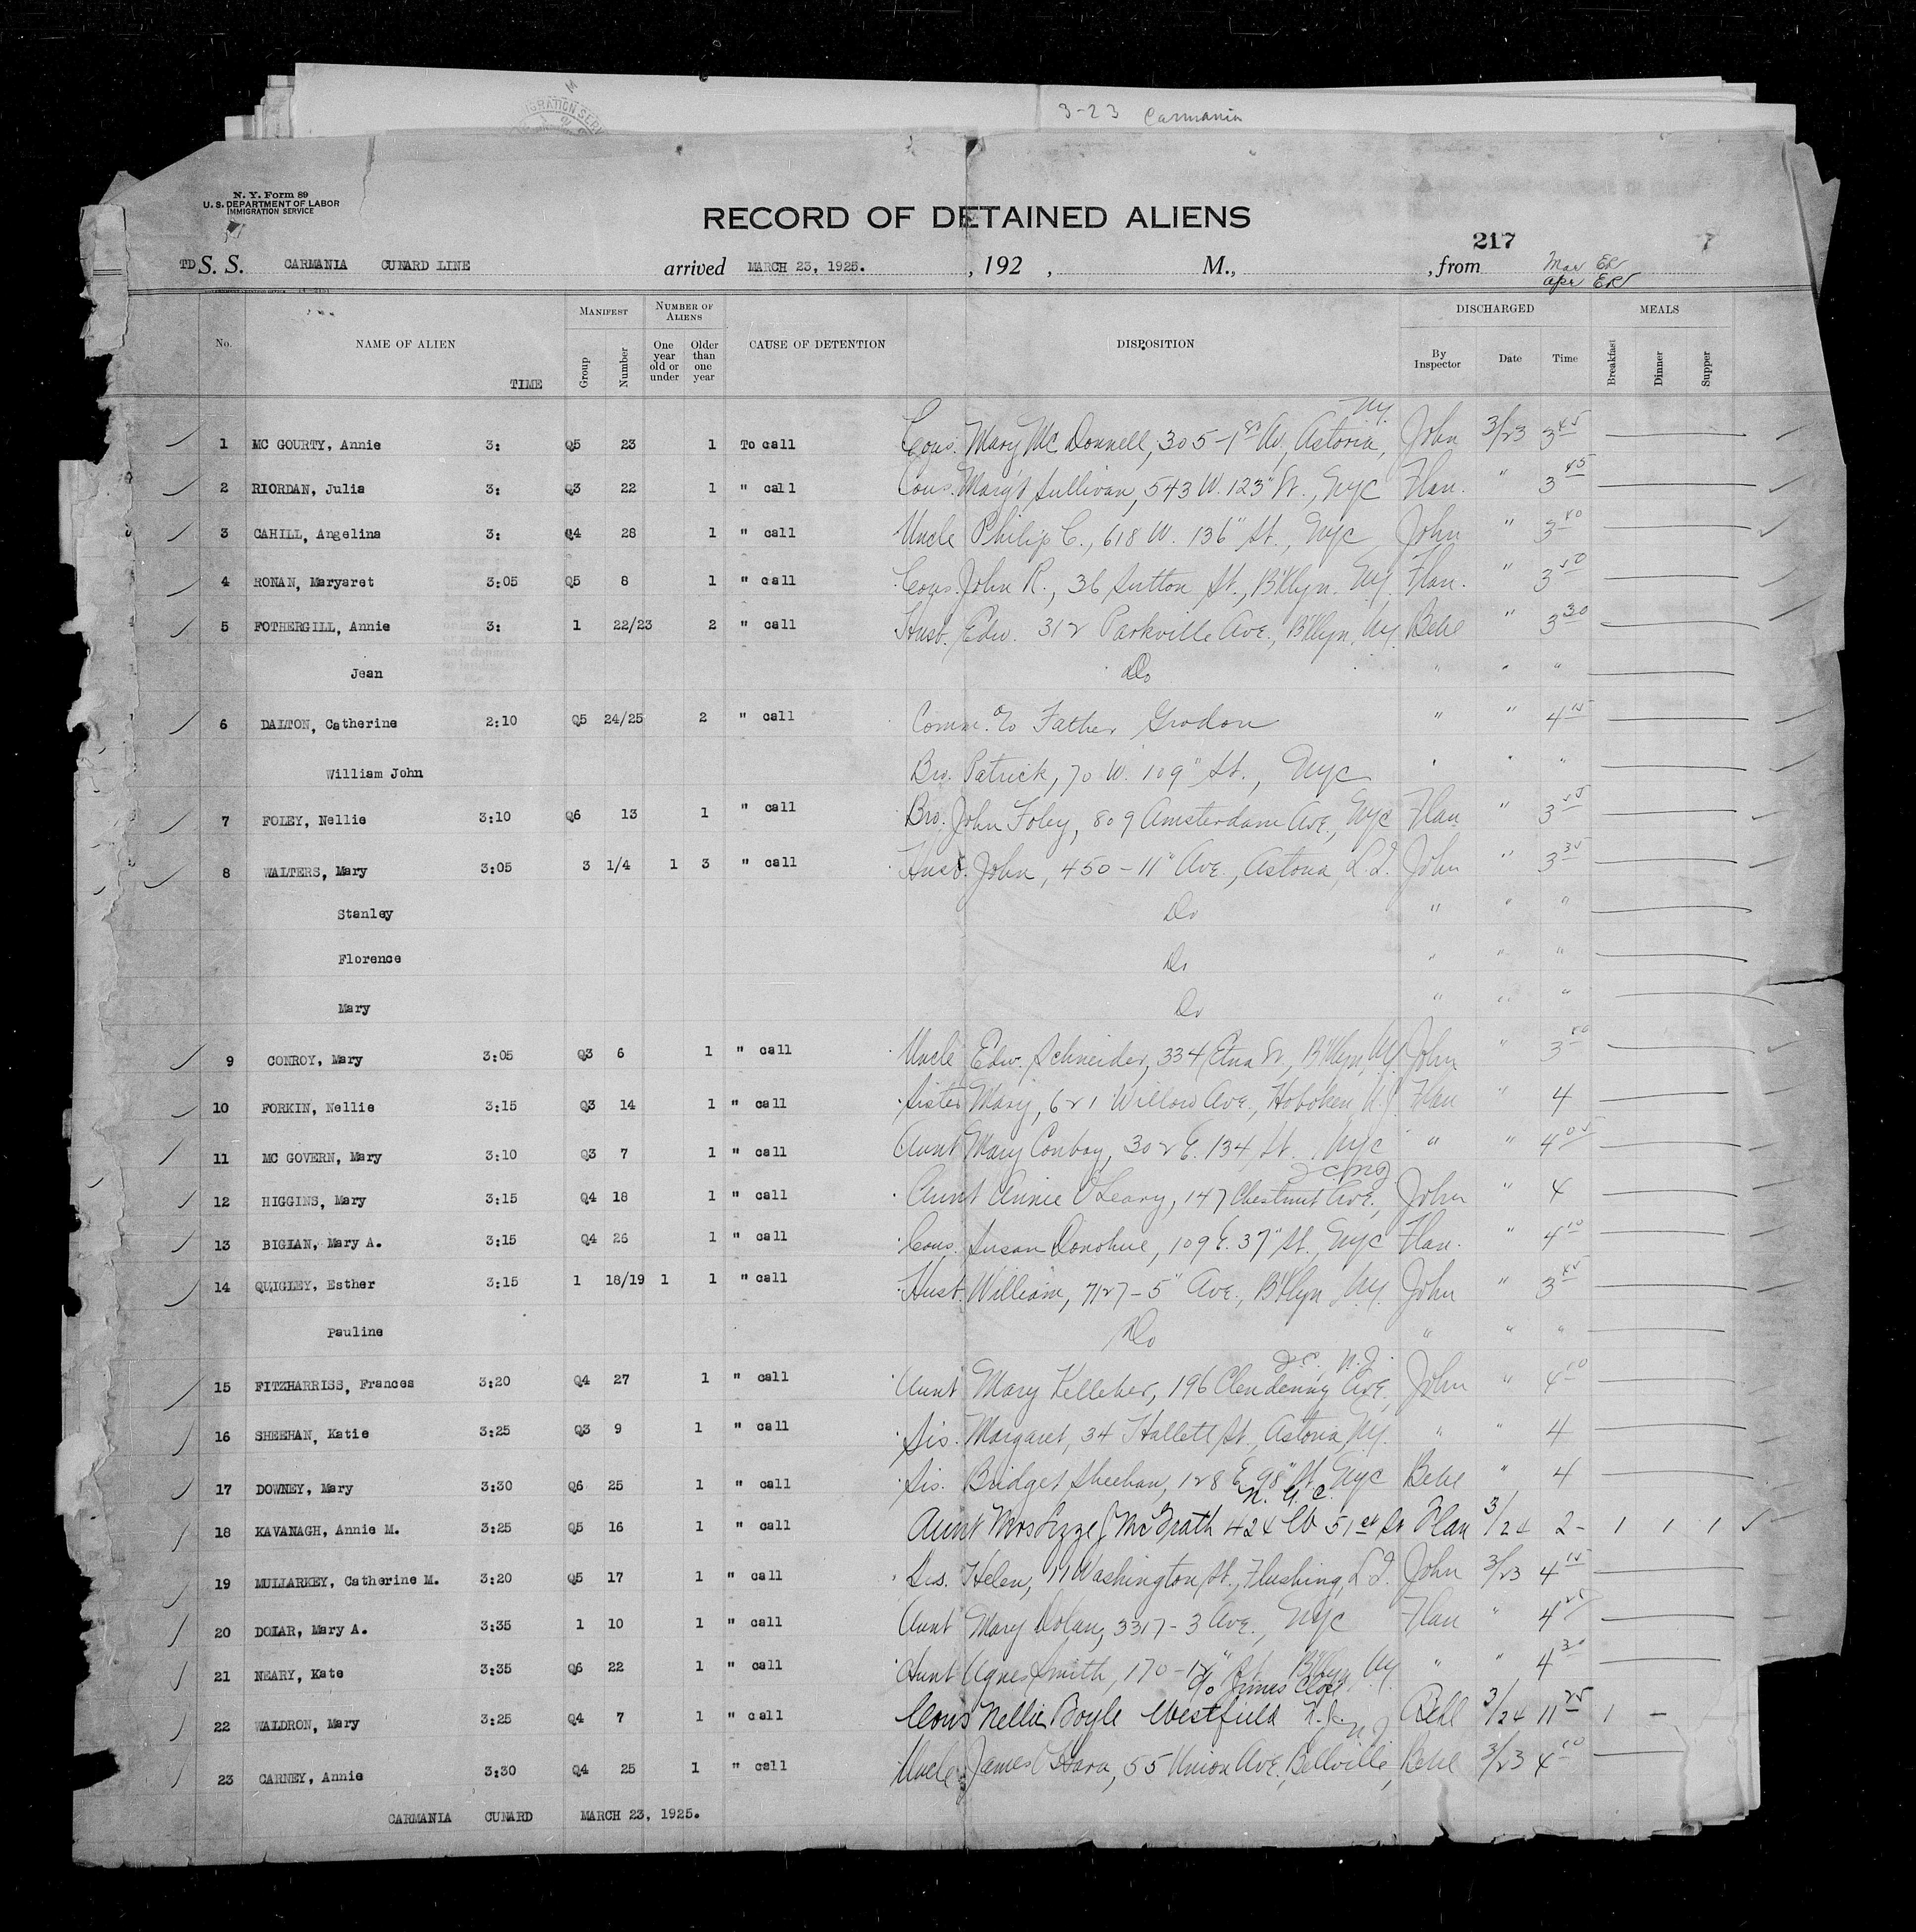 3-23 Carmania
N. Y. Form 89
U. S. DEPARTMENT OF LABOR
IMMIGRATION SERVICE
RECORD OF DETAINED ALIENS
217
TD S. S. CARMANIA CUNARD LINE arrived MARCH 23, 1925. , 192 , M., , from Mar
Apr
No. NAME OF ALIEN TIME MANIFEST Group Number NUMBER OF ALIENS One year old or under Older than one year CAUSE OF DETENTION DISPOSITION DISCHARGED By Inspector Date Time MEALS Breakfast Dinner Supper
NY
1 MC GOURTY, Annie 3: Q5 23 1 To call Cous. Mary McDonnell, 305-1st Av, Astoria, John 3/23 3 45
2 RIORDAN, Julia 3: Q3 22 1 " call Cous. Mary Sullivan, 543 W. 123" St., NYC Flan. " 3 45
3 CAHILL, Angelina 3: Q4 28 1 " call Uncle Philip C., 618 W. 136" St., NYC John " 3 40
4 RONAN, Maryaret 3:05 Q5 8 1 " call Cous. John R., 36 Sutton St., B'klyn. NY. Flan. " 3 50
5 FOTHERGILL, Annie 3: 1 22/23 2 " call Husb. Edw. 312 Parkville Ave., B'klyn, NY. Behl " 3 30
Jean Do " " "
6 DALTON, Catherine 2:10 Q5 24/25 2 " call Comm. c/o Father Grodon " " 4 15
William John Bro. Patrick, 70 W. 109" St., NYC " " "
7 FOLEY, Nellie 3:10 Q6 13 1 " call Bro. John Foley, 809 Amsterdam Ave., NYC Flan " 3 55
8 WALTERS, Mary 3:05 3 1/4 1 3 " call Husb. John, 450-11" Ave., Astoria, L.I. John " 3 35
Stanley Do " " "
Florence Do " " "
Mary Do " " "
9 CONROY, Mary 3:05 Q3 6 1 " call Uncle Edw. Schneider, 334 Etna St., B'klyn, NY. John " 3 50
10 FORKIN, Nellie 3:15 Q3 14 1 " call Sister Mary, 621 Willow Ave., Hoboken, N.J. Flan " 4
11 MC GOVERN, Mary 3:10 Q3 7 1 " call Aunt Mary Conboy, 302 E. 134 St., NYC " " 4 05
JCNJ
12 HIGGINS, Mary 3:15 Q4 18 1 " call Aunt Annie O'Leary, 147 Chestnut Ave., John " 4
13 BIGLAN, Mary A. 3:15 Q4 26 1 " call Cous. Susan Donohue, 109 E. 37" St., NYC Flan. " 4 10
14 QUIGLEY, Esther 3:15 1 18/19 1 1 " call Husb. William, 7127-5" Ave., B'klyn NY. John " 3 45
Pauline Do " " "
J.C. N.J.
15 FITZHARRISS, Frances 3:20 Q4 27 1 " call Aunt Mary Kelleher, 196 Clendenny Ave., John " 4 10
16 SHEEHAN, Katie 3:25 Q3 9 1 " call Sis. Margaret, 34 Hallett St., Astoria, NY. " " 4
17 DOWNEY, Mary 3:30 Q6 25 1 " call Sis. Bridget Sheehan, 128 E. 98" St. NYC Behl " 4
N. Y. C.
18 KAVANAGH, Annie M. 3:25 Q5 16 1 " call Aunt Mrs Lizze J McGrath 424 W 51st St Flan 3/24 2- 1 1 1
19 MULLARKEY, Catherine M. 3:20 Q5 17 1 " call Sis. Helen, 11 Washington St., Flushing, L.I. John 3/23 4 15
20 DOLAR, Mary A. 3:35 1 10 1 " call Aunt Mary Dolan, 3317-3 Ave., NYC Flan " 4 25
21 NEARY, Kate 3:35 Q6 22 1 " call Aunt Agnes Smith, 170-12" St. B'klyn NY. " " 4 30
c/o James
22 WALDRON, Mary 3:25 Q4 7 1 " call Cous Nellie Boyle Westfield N.J. Behl 3/24 11 25 1 -
N.J.
23 CARNEY, Annie 3:30 Q4 25 1 " call Uncle James O'Hara, 55 Union Ave., Bellville, Behl 3/23 4 10
CARMANIA CUNARD MARCH 23, 1925.